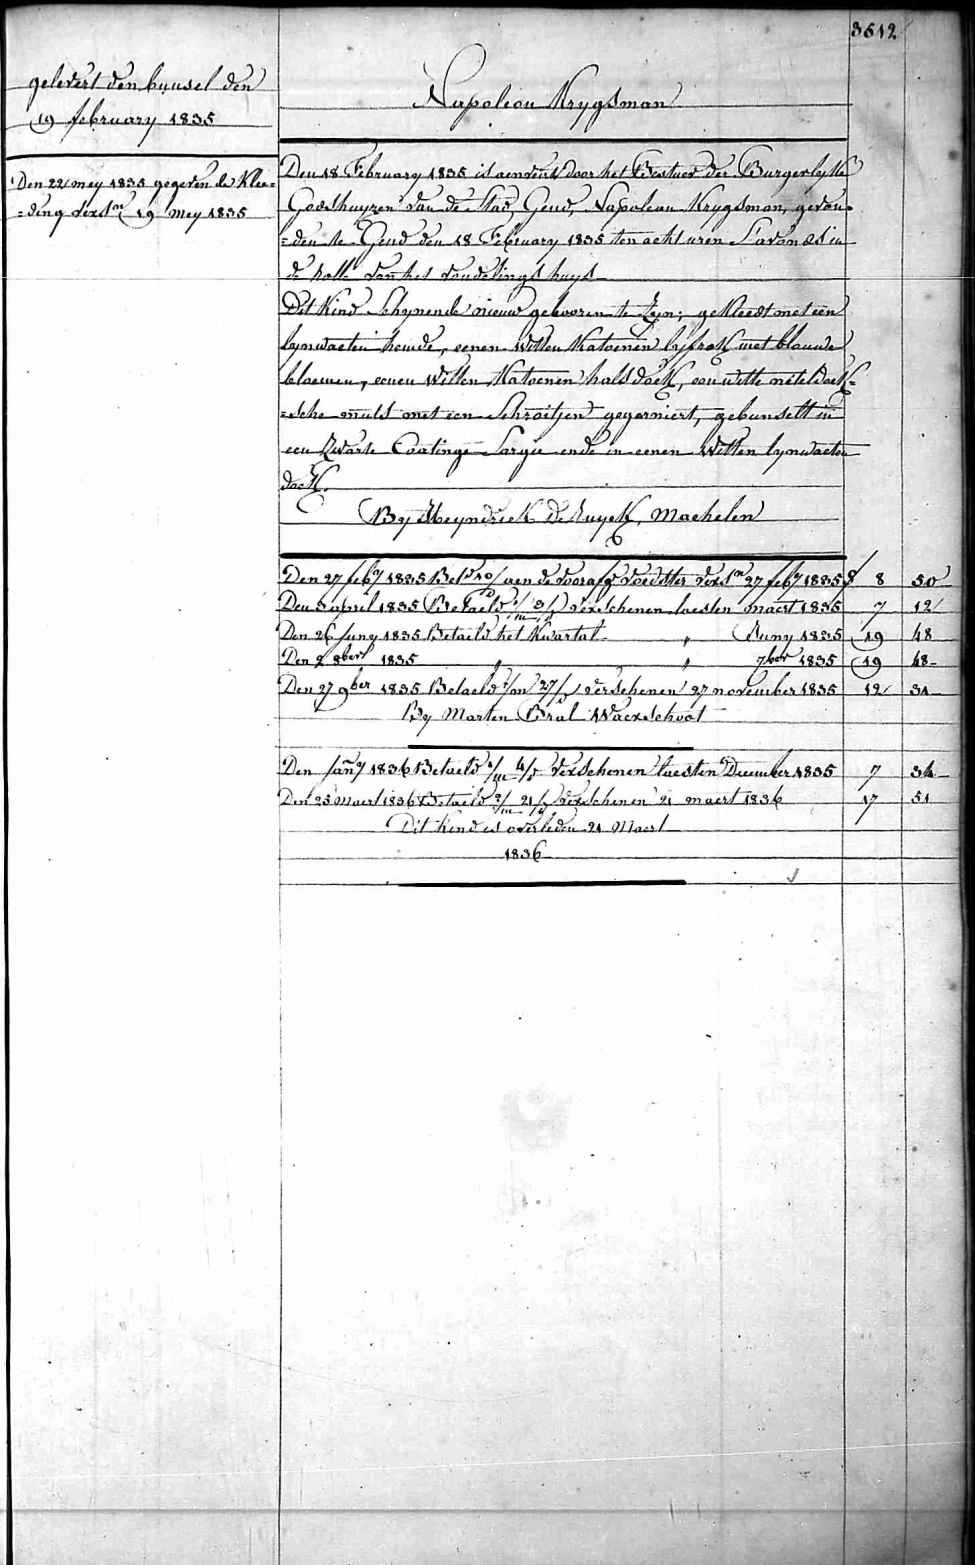 3612
gelevert den bunsel den
19 february 1835
Napoleon Krygsman
Den 22 mey 1835 gegeven de Klee=
=ding versn 19 mey 1835
Den 18 February 1835 is aenveirt door het Bestuer der Burgerlyke
Godshuyzen van de Stad, Gend, Napoleon Krygsman, gevon=
=den te Gend den 18 February 1835 ten acht uren S'avonds in
de rolle van het vondelings huys
Dit Kind Schynende nieuw gebooren te Zyn; gekleedt met een
lynwaeten hemde, eenen witten Katoenen lyfrok met blauwe
bloemen, eenen witten Katoenen halsdoek, een witte neteldoek=
=sche muts met een Schroitjen gegarniert, gebunselt in
een Zwarte Coatinge Sargie ende in eenen witten lynwaeten
doek.
By Meyndrick De Ruyck, Machelen
Den 27 feby 1835 Beld 10/ aen de voorafg voedster versn 27 feby 1835 8 50
Den 3 april 1835 Betaeld 1/m 3/d verschenen laesten maert 1835 7 12
Den 26 Juny 1835 Betaeld het Kwartal " Juny 1835 19 48
Den 2 8ber 1835 " " 7ber 1835 19 48
Den 27 9ber 1835 Betaeld 1/m 27/d verschenen 27 november 1835 12 31
By Marten Bral Waerschoot
Den Jany 1836 Betaeld 1/m 4/d verschenen laesten December 1835 7 34
Den 25 Maert 1836 Betaeld 2/m 21/d verschenen 21 maert 1836 17 51
Dit Kind is overleden 21 Maert
1836